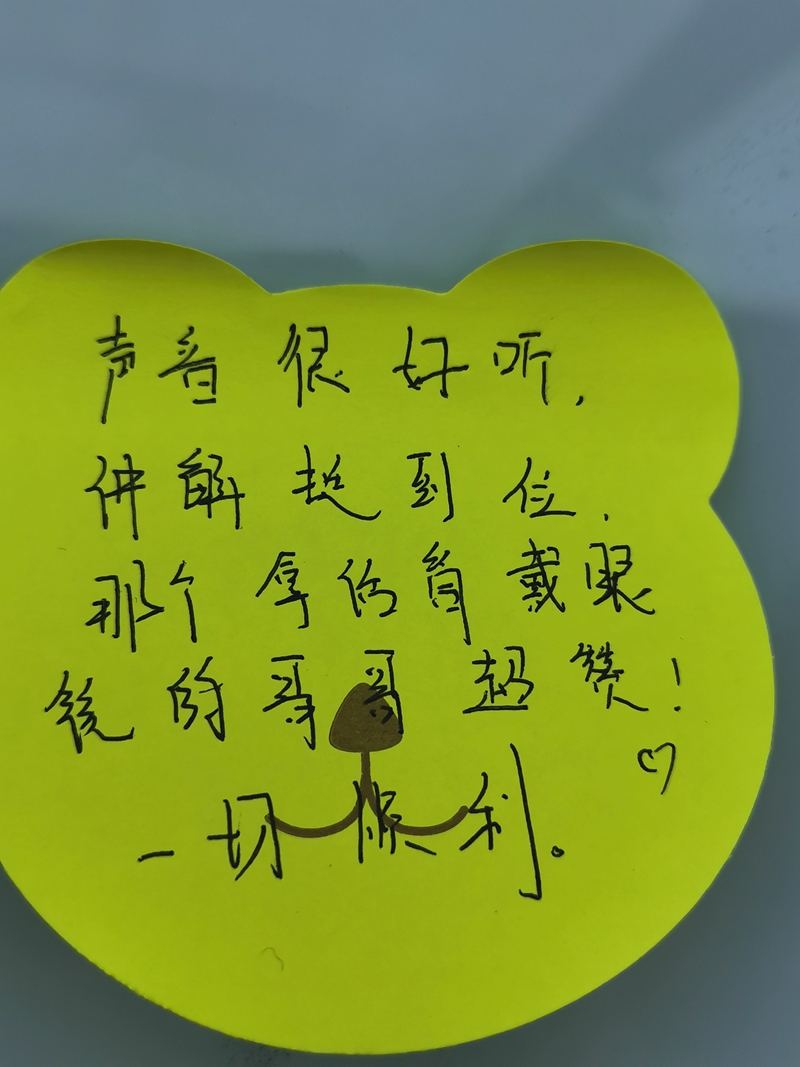 声音很好听,
讲解挺到位,
那个拿话筒戴眼
镜的哥哥超赞!
♡
一切顺利。